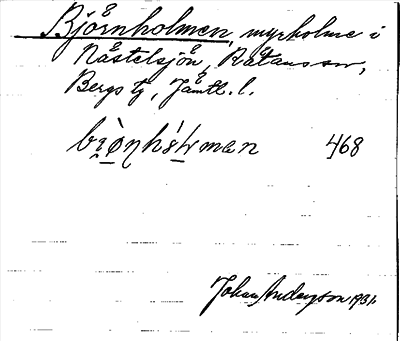 Björnholmen, myrholme i
Nästelsjön, Rätans sn,
Bergs tg, Jämtl. l.
468
Johan Anderson 1931.